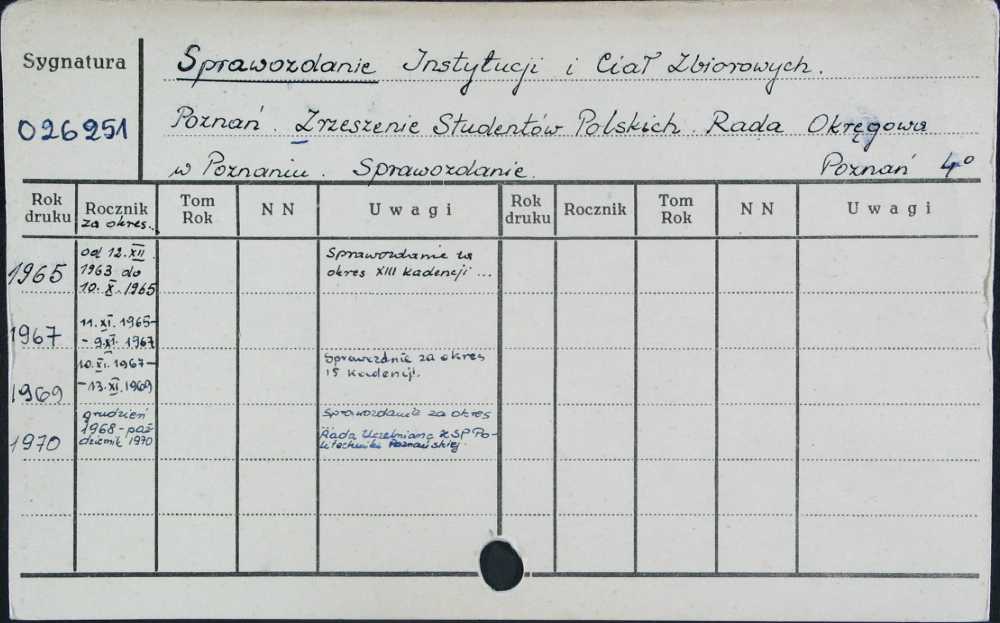 Sygnatura
026251
Sprawozdanie Instytucji i Ciał Zbiorowych.
Poznań. Zrzeszenie Studentów Polskich. Rada Okręgowa
w Poznaniu. Sprawozdanie. Poznań 4°
Rok druku Rocznik za okres.. Tom Rok N N Uwagi Rok druku Rocznik Tom Rok N N Uwagi
1965
od 12. XII.
1963 do
10. X. 1965
Sprawozdanie za
okres XIII kadencji ...
1967
11. XI. 1965-
- 9.XI. 1967
1969
10. XI. 1967-
-13. XI. 1969
Sprawozdnie za okres
15 kadencji.
1970
grudzień
1968-paź-
dziernik 1970
Sprawozdanie za okres
Rada Uczelniana ZSP Po-
litechniki Poznańskiej.